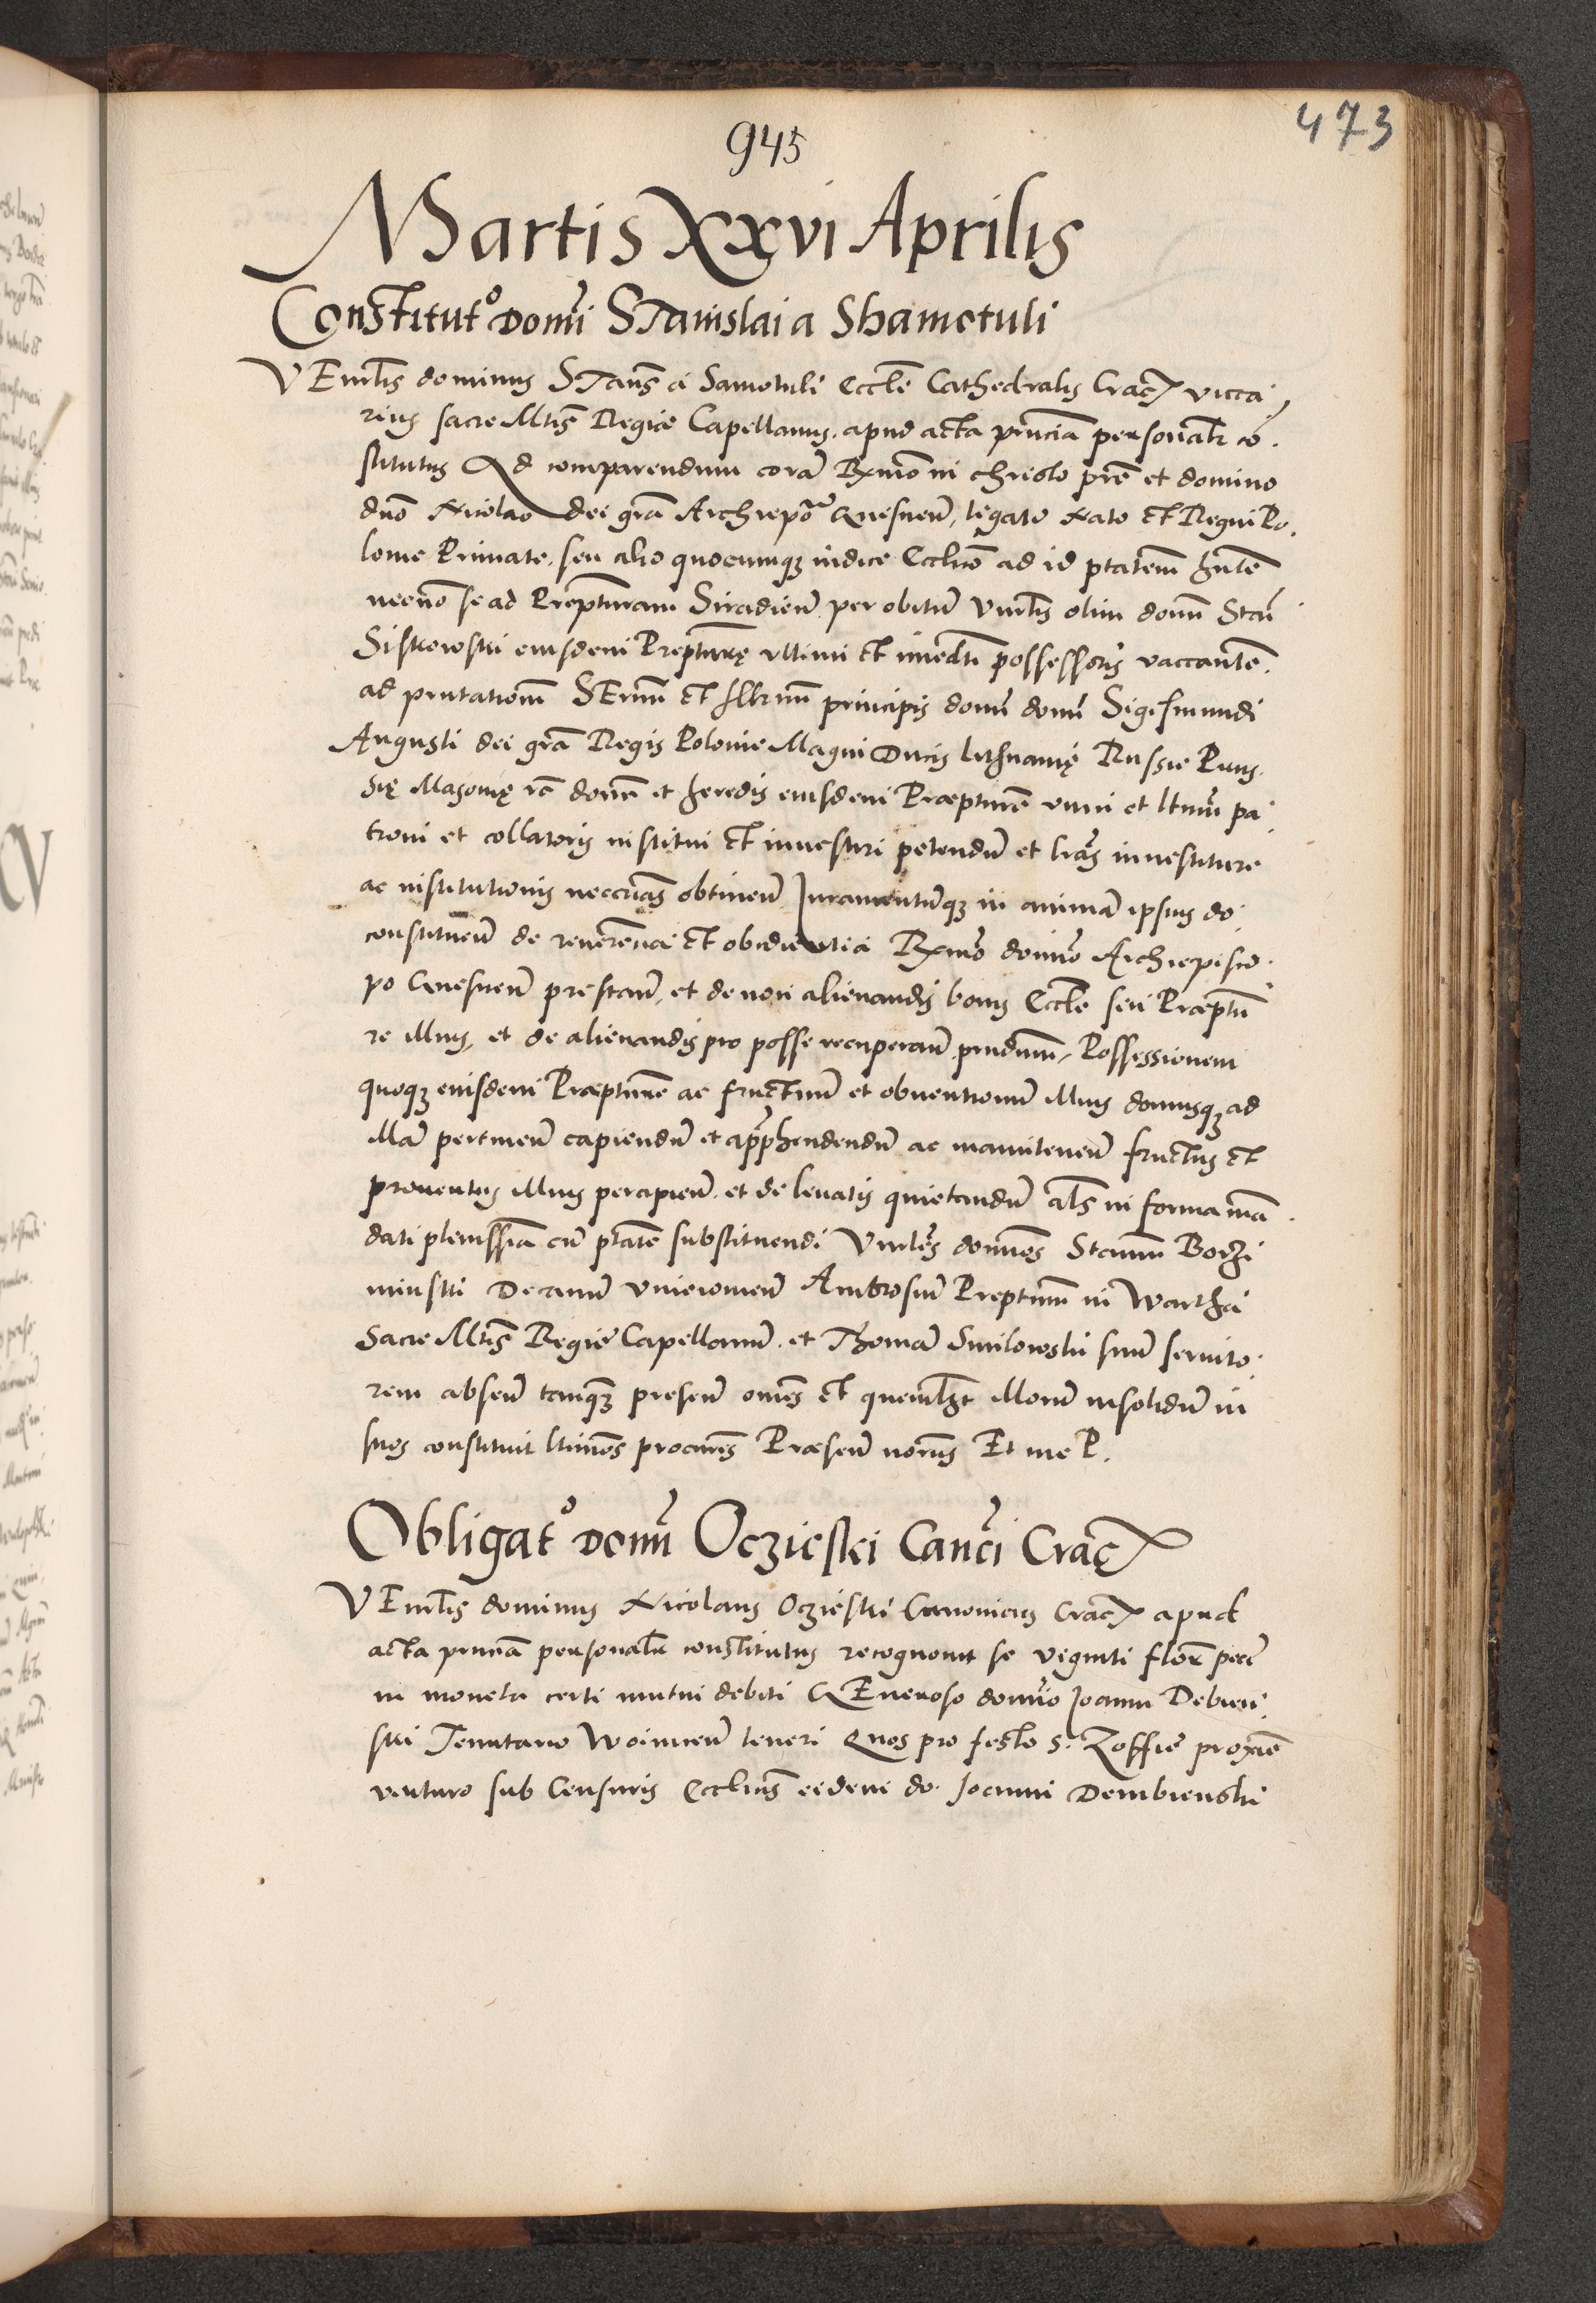 473
945
Martis XXVI Aprilis
Constitut° Domĩ Stanislai a Shamotuli
VEnrlis dominus STañs a Samotuli Eccłe Cathedralis Crac̃ vicca
rius sacre Mtis Regie Capellanus apud acta p̃nciã personalr cõ
stitutus Ad comparendum corã Rx̃mo in christo pr̃e et domino
dño Nicolao dei grã Archiepõ Gnesneñ, legato Nato et Regni Po
lonie Primate, seu alio quocumqȝ iudice Eccłico ad id p̃tatem hñte
necno se ad Prepturam Siradieñ per obitũ Vnrlis olim domĩ Stañ
eiusdem Prepture vltimi et imedti possessoris vaccantẽ
ad pñtationem SErmi et Illr̃mi principis domĩ domĩ Sigismundi
Augusti dei grã Regis Polonie Magni Ducis Lithuanię Russie Prus
się Masovię rc̃ domĩ et heredis eiusdem Præpture vnici et ltimi pa
troni et collatoris institui et inuestiri petendũ et lrãs inuestiture
ac institutionis neccrias obtineñ Iuramentũqȝ in animã ipsius do
constitueñ de reuerencia et obedientia Rx̃mo domino Archiepisco
po Gnesneñ prestañ, et de non alienandis bonis Eccłe seu Præptu
re illius, et de alienandis pro posse recuperañ Possessionem
quoqȝ eiusdem Præpture ac fructuũ et obuentionũ illius domusqȝ ad
illã pertineñ capiendũ et apphendendũ ac manuteneñ fructus et
prouentus illius percipieñ et de leuatis quietandũ als in forma mã
dati plenissĩa cũ p̃tate substituendi Vnrles dominos Stanum Borzi
minski Decanũ Vnieiouieñ Ambrosiũ Prepturũ in Wartha
Sacre Mtis Regie Capellanũ et Thomã Smilowski suũ seruito
rem absen̄ tanqȝ preseñ omes et quemlȝt illorũ insolidũ in
suos constituit ltimos procures Præseñ noriis Et me P.
Obligat° Domĩ Oczieski Canci Crac̃
VEnrlis dominus Nicolaus Oczieski Canonicus Crac̃ apud
acta p̃nciã personalr constitutus recognouit se viginti flor pecc̃
in moneta certi mutui debiti GEneroso domino Joanni Debien
ski Tenutario teneri Quos pro festo S. Zoffie proxie
venturo sub Censuris Eccłicis eidem do. Joanni Dembienski